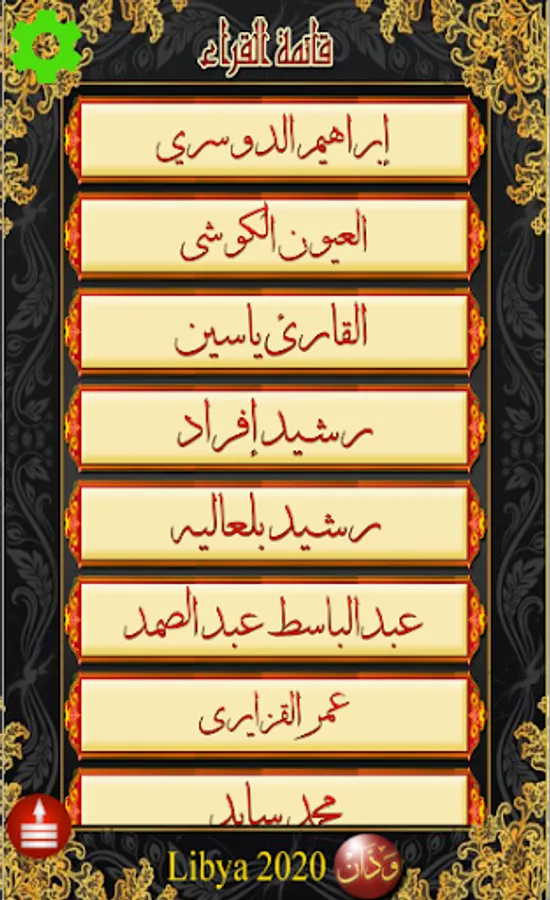 قائمة القراء
إبراهيم الدوسري
العيون الكوشى
القارئ ياسين
رشيد إفراد
رشيد بلعاليه
عبدالباسط عبدالصمد
عمر القزابرى
محمد سايد
Libya 2020 ودان